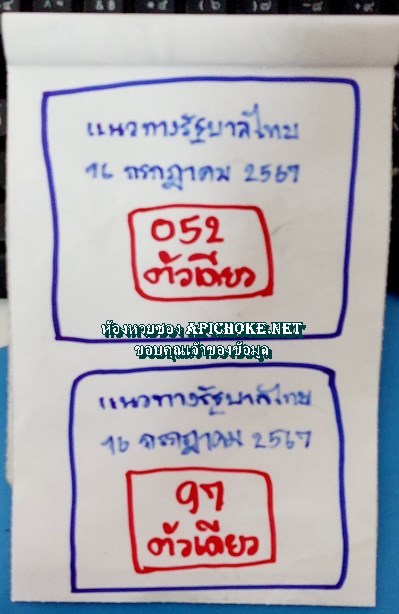 แนวทางรัฐบาลไทย
16 กรกฎาคม 2567
052
ตัวเดียว
ห้องหวยซอง APICHOKE.NET
ขอบคุณเจ้าของข้อมูล
แนวทางรัฐบาลไทย
16 กรกฎาคม 2567
97
ตัวเดียว